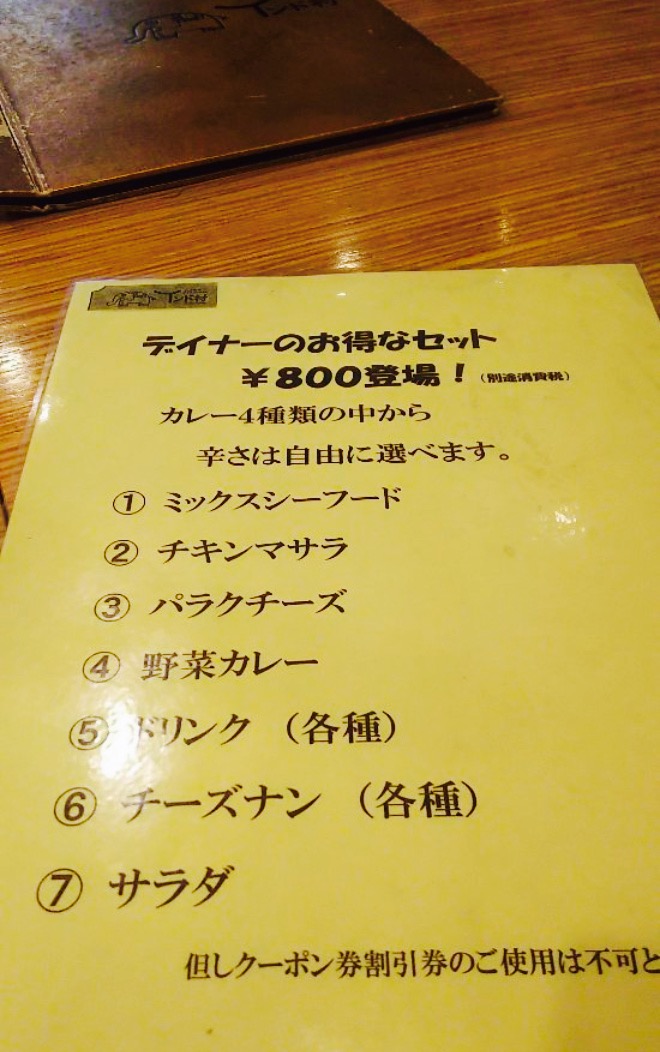 デイナーのお得なセット
￥800登場！（別途消費税）
カレー4種類の中から
辛さは自由に選べます。
① ミックスシーフード
② チキンマサラ
③ パラクチーズ
④ 野菜カレー
⑤ ドリンク （各種）
⑥ チーズナン （各種）
⑦ サラダ
但しクーポン券割引券のご使用は不可と